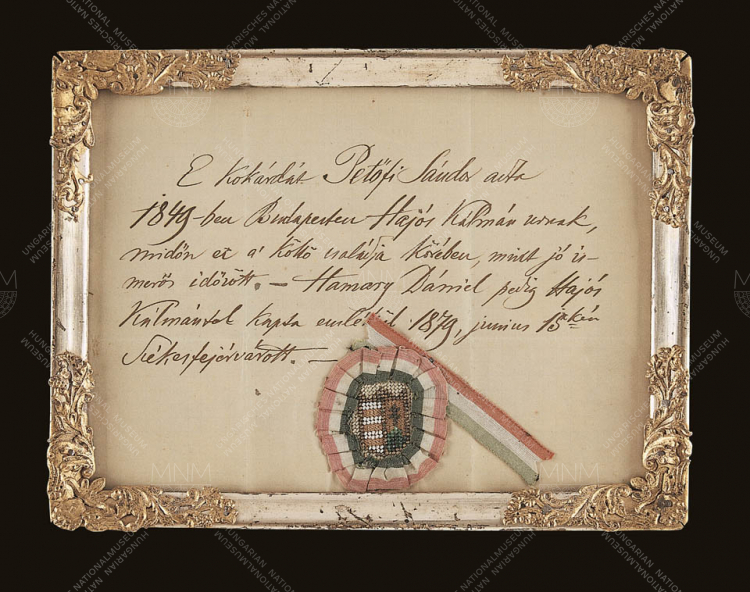 E kokárdát Petőfi Sándor adta
1849-ben Budapesten Hajós Kálmán urnak,
midőn ez a' költő családja körében, mint jó is-
merős időzött. — Hamary Dániel pedig Hajós
Kálmántol kapta emlékül 1879, junius 13kán
Székesfejérvárott. —
MNM
HUNGARIAN NATIONAL MUSEUM
UNGARISCHES NATIONALMUSEUM